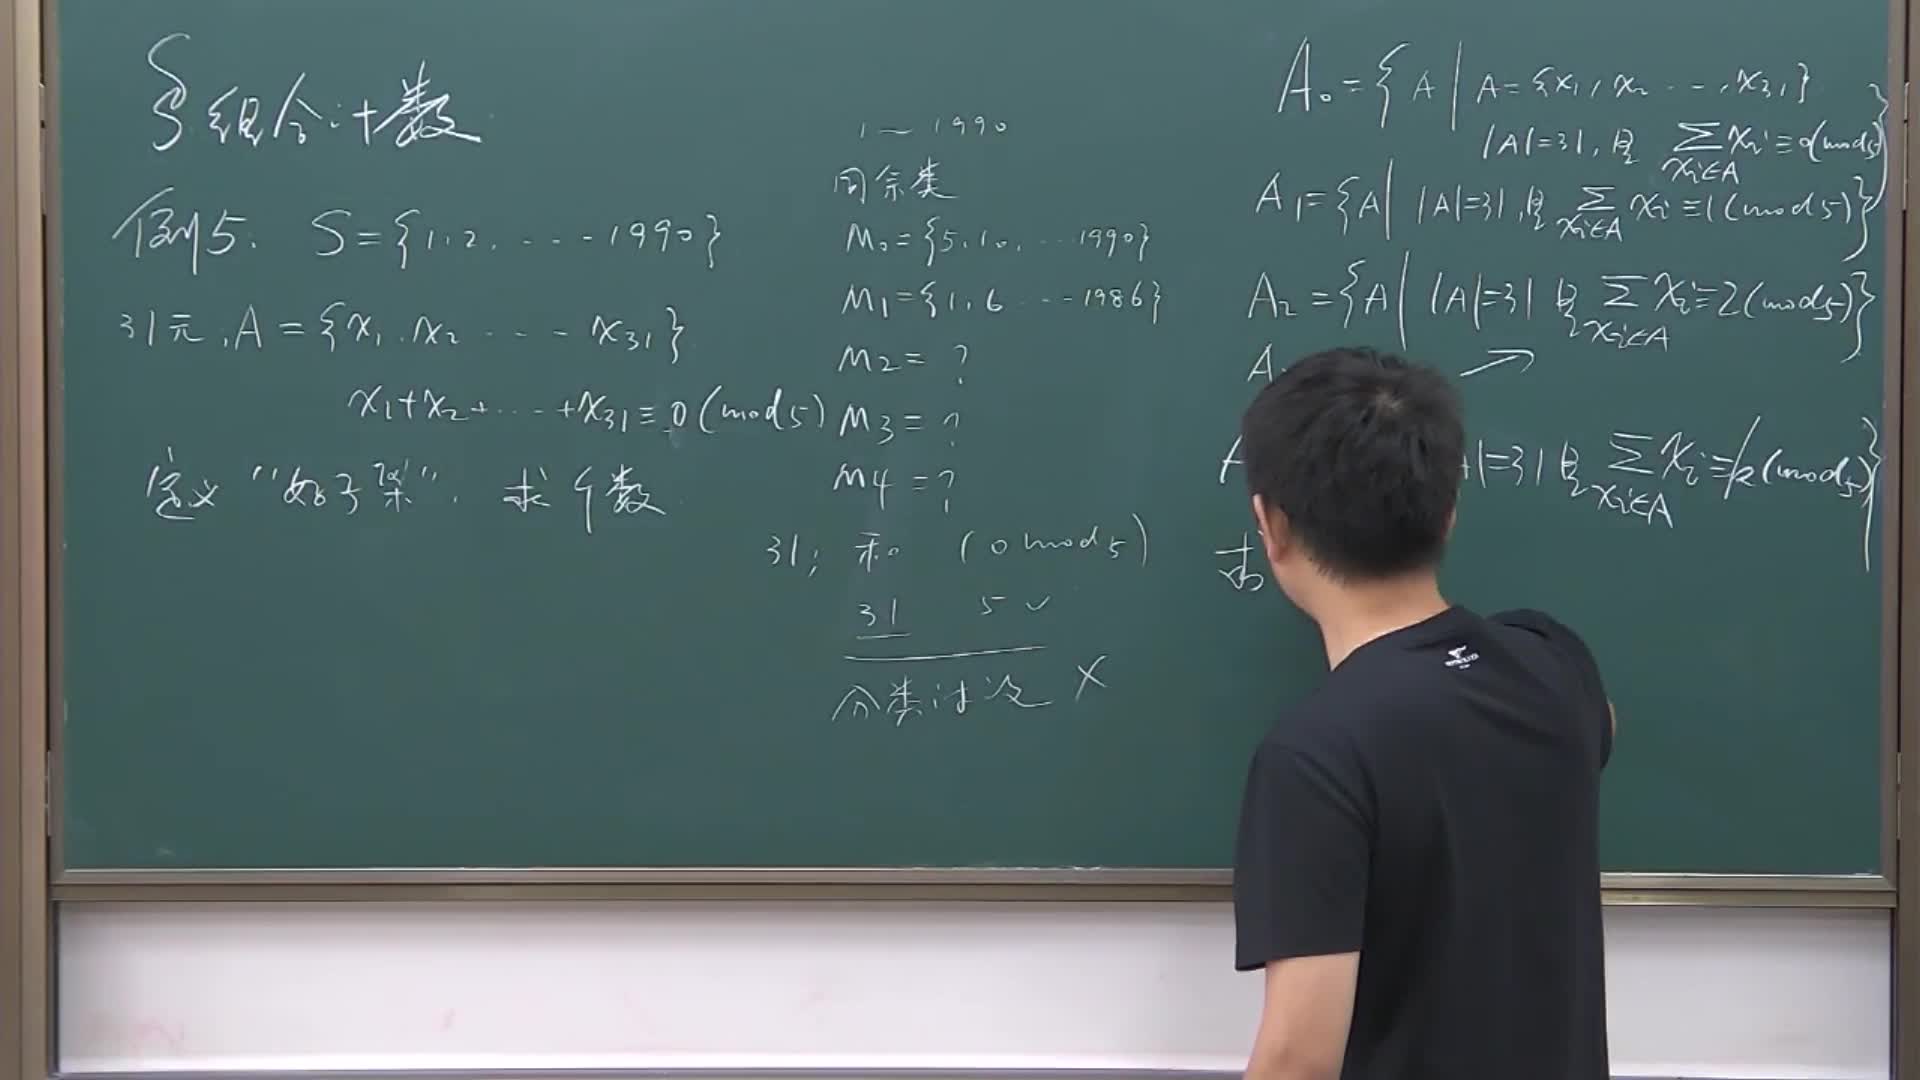 §组合计数
例5. S={1.2. ---1990}
31元,A={x₁.x₂ --- x₃₁}
x₁+x₂+...+x₃₁≡0(mod5)
定义“好子集”. 求个数
1~1990
同余类
M₀={5.10. ...1990}
M₁={1.6 ...-1986}
M2= ?
M3= ?
M4=?
31; 和 (0 mod 5)
31 5 ✓
分类讨论 ×
A₀={A|A={x₁,x₂ --,x₃₁}
|A|=31,且 ∑xi≡0(mod5)}
xi∈A
A₁={A| |A|=31,且 ∑xi≡1(mod5)}
xi∈A
A₂={A| |A|=31 且 ∑xi≡2(mod5)}
xi∈A
A
A|=31且 ∑xi≡k(mod5)}
xi∈A